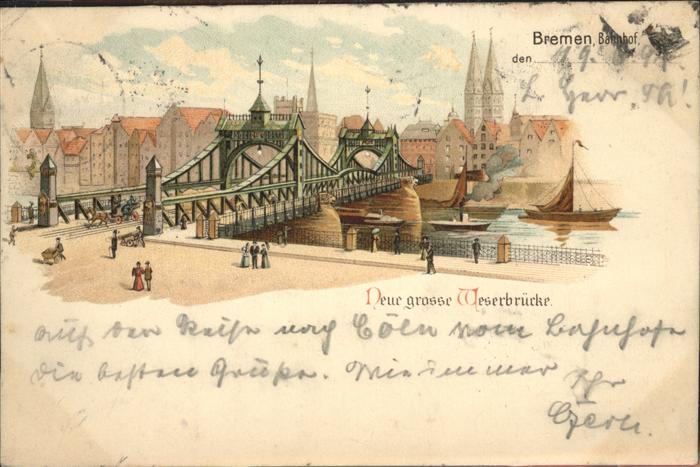 Bremen, Bahnhof,
den
L. Herr
Neue grosse Weserbrücke.
Auf der Reise nach Cöln vom Bahnhofe
die besten Grüße. Wie immer Ihr